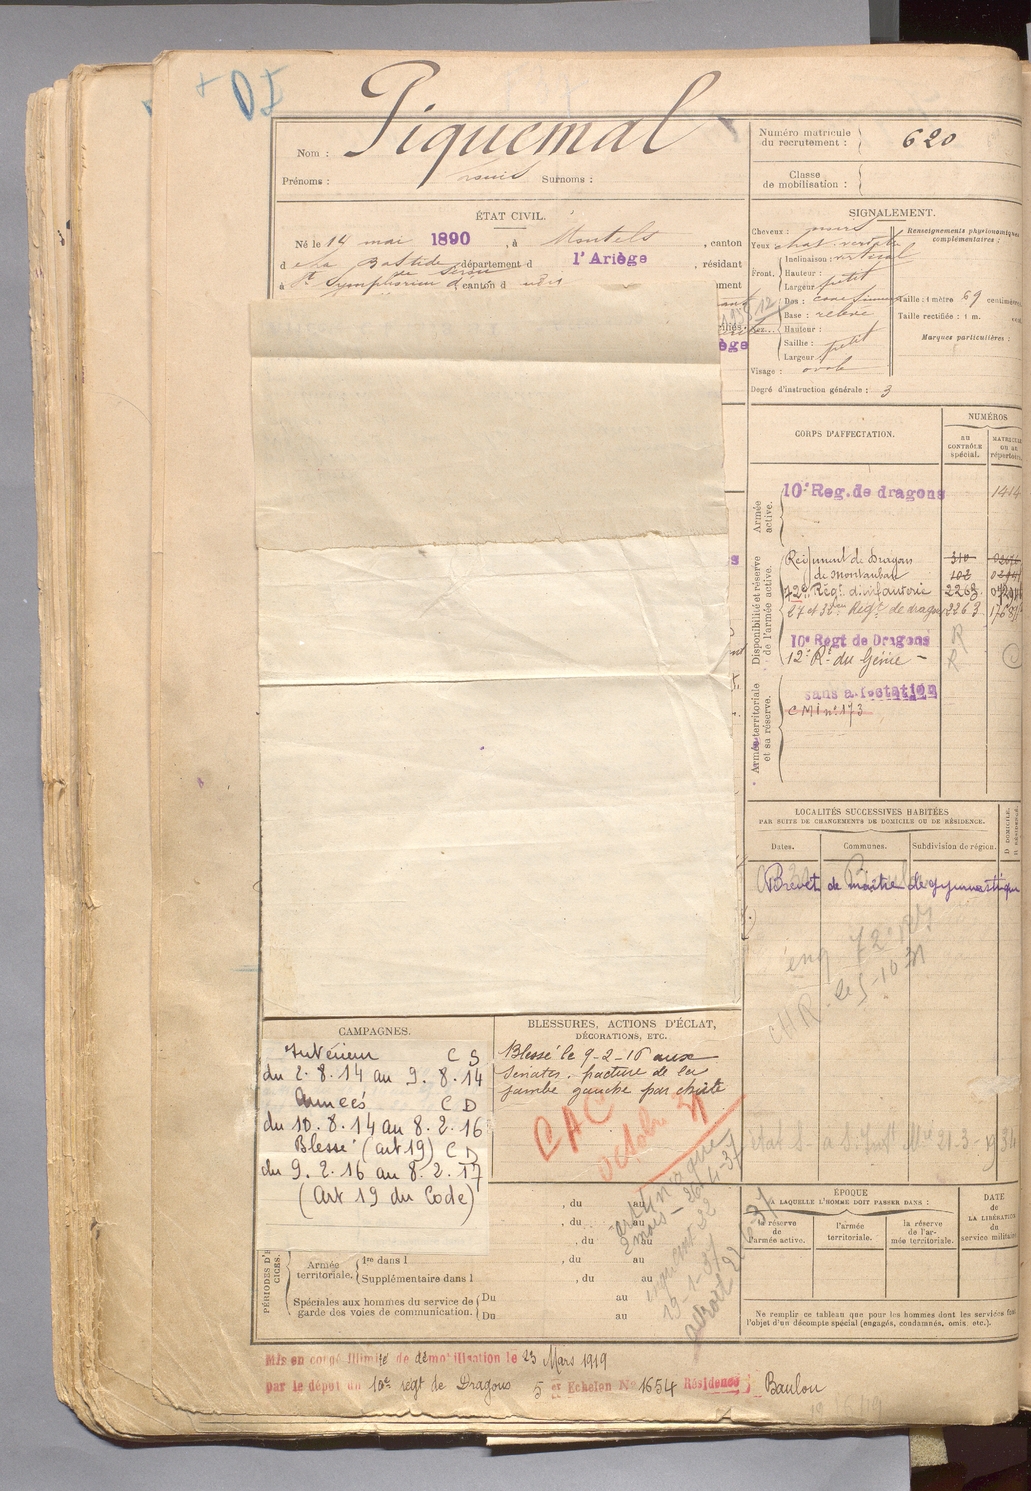 Piquemal
Nom :
Prénoms : Louis Surnoms :
Numéro matricule
du recrutement : 620
Classe
de mobilisation :
ÉTAT CIVIL.
Né le 14 mai 1890, à Montels, canton
de La Bastide de Sérou département d l'Ariège, résidant
à St Symphorien d canton d
ège
SIGNALEMENT.
Cheveux : noirs
Yeux chat. verdatre
Front. Inclinaison : vertical
Hauteur :
Largeur petit
Nez... Dos :
Base : relevé
Hauteur :
Saillie : petit
Largeur
Visage : ovale
Renseignements physionomiques
complémentaires :
Taille : 1 mètre 69 centimètres
Taille rectifiée : 1 m. cent.
Marques particulières :
Degré d'instruction générale : 3
CORPS D'AFFECTATION.
NUMÉROS
au
CONTRÔLE
spécial.
MATRICULE
ou au
répertoire.
Armée
active.
10e Reg. de dragons 1414
Disponibilité et réserve
de l'armée active.
Régiment de Dragons 310
de Montauban 102
72e Régt d'infanterie 2263
27 et 32me Régt de dragons 2263
10e Régt de Dragons
12e Rt du Génie -
Armée territoriale
et sa réserve.
sans affectation
CMI n° 173
LOCALITÉS SUCCESSIVES HABITÉES
PAR SUITE DE CHANGEMENTS DE DOMICILE OU DE RÉSIDENCE.
Dates. Communes. Subdivision de région. D. DOMICILE. R. RÉSIDENCE.
Brevet de maître de gymnastique
CAMPAGNES.
Intérieur C S
du 2.8.14 au 9.8.14
Armées C D
du 10.8.14 au 8.2.16
Blessé (art 19) C D
du 9.2.16 au 8.2.17
(art 19 du Code)
BLESSURES, ACTIONS D'ÉCLAT,
DÉCORATIONS, ETC.
Blessé le 9-2-16 aux
fracture de la
jambe gauche par chute
CAC
, du au
, du au
, du au
PÉRIODES D'EXERCICES.
Armée
territoriale. 1re dans l , du au
Supplémentaire dans l , du au
Spéciales aux hommes du service de
garde des voies de communication. Du au
Du au
ÉPOQUE
À LAQUELLE L'HOMME DOIT PASSER DANS :
la réserve
de l'armée active.
l'armée
territoriale.
la réserve
de l'ar-
mée territoriale.
DATE
de
LA LIBÉRATION
du
service militaire.
Ne remplir ce tableau que pour les hommes dont les services font
l'objet d'un décompte spécial (engagés, condamnés, omis etc.).
Mis en congé illimité de démobilisation le 23 Mars 1919
par le dépôt du 10e régt de Dragons 5 er Echelon No 1654 Résidence Baulou